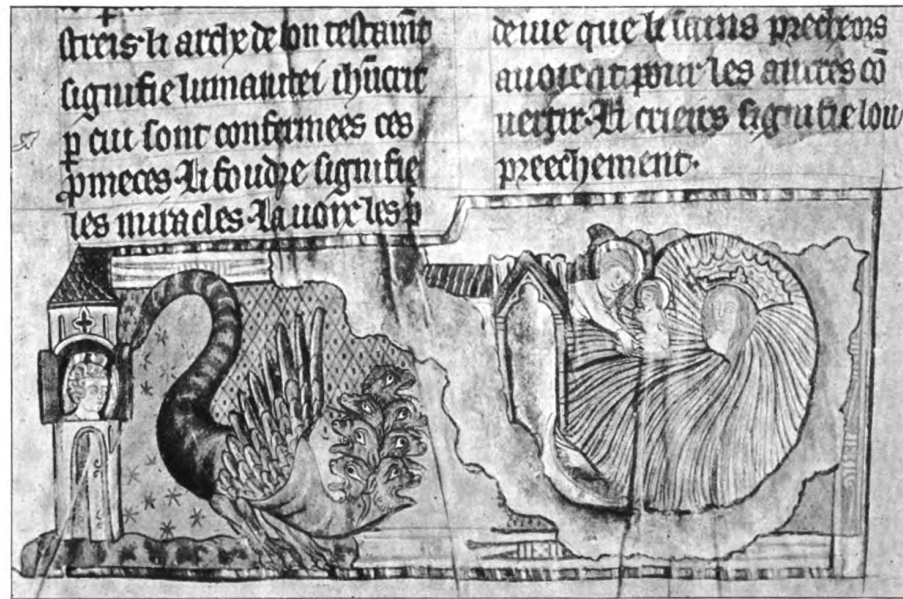 streis·li arche de son testam̄t
signifie lumanitei ihūcrit
ꝑ cui sont confermees ces
ꝓmeces·li foudre signifie
les miracles·La uoix les p̄
que li sains
auoient pour les autres cō
uertir·Li signifie lou
preechement·